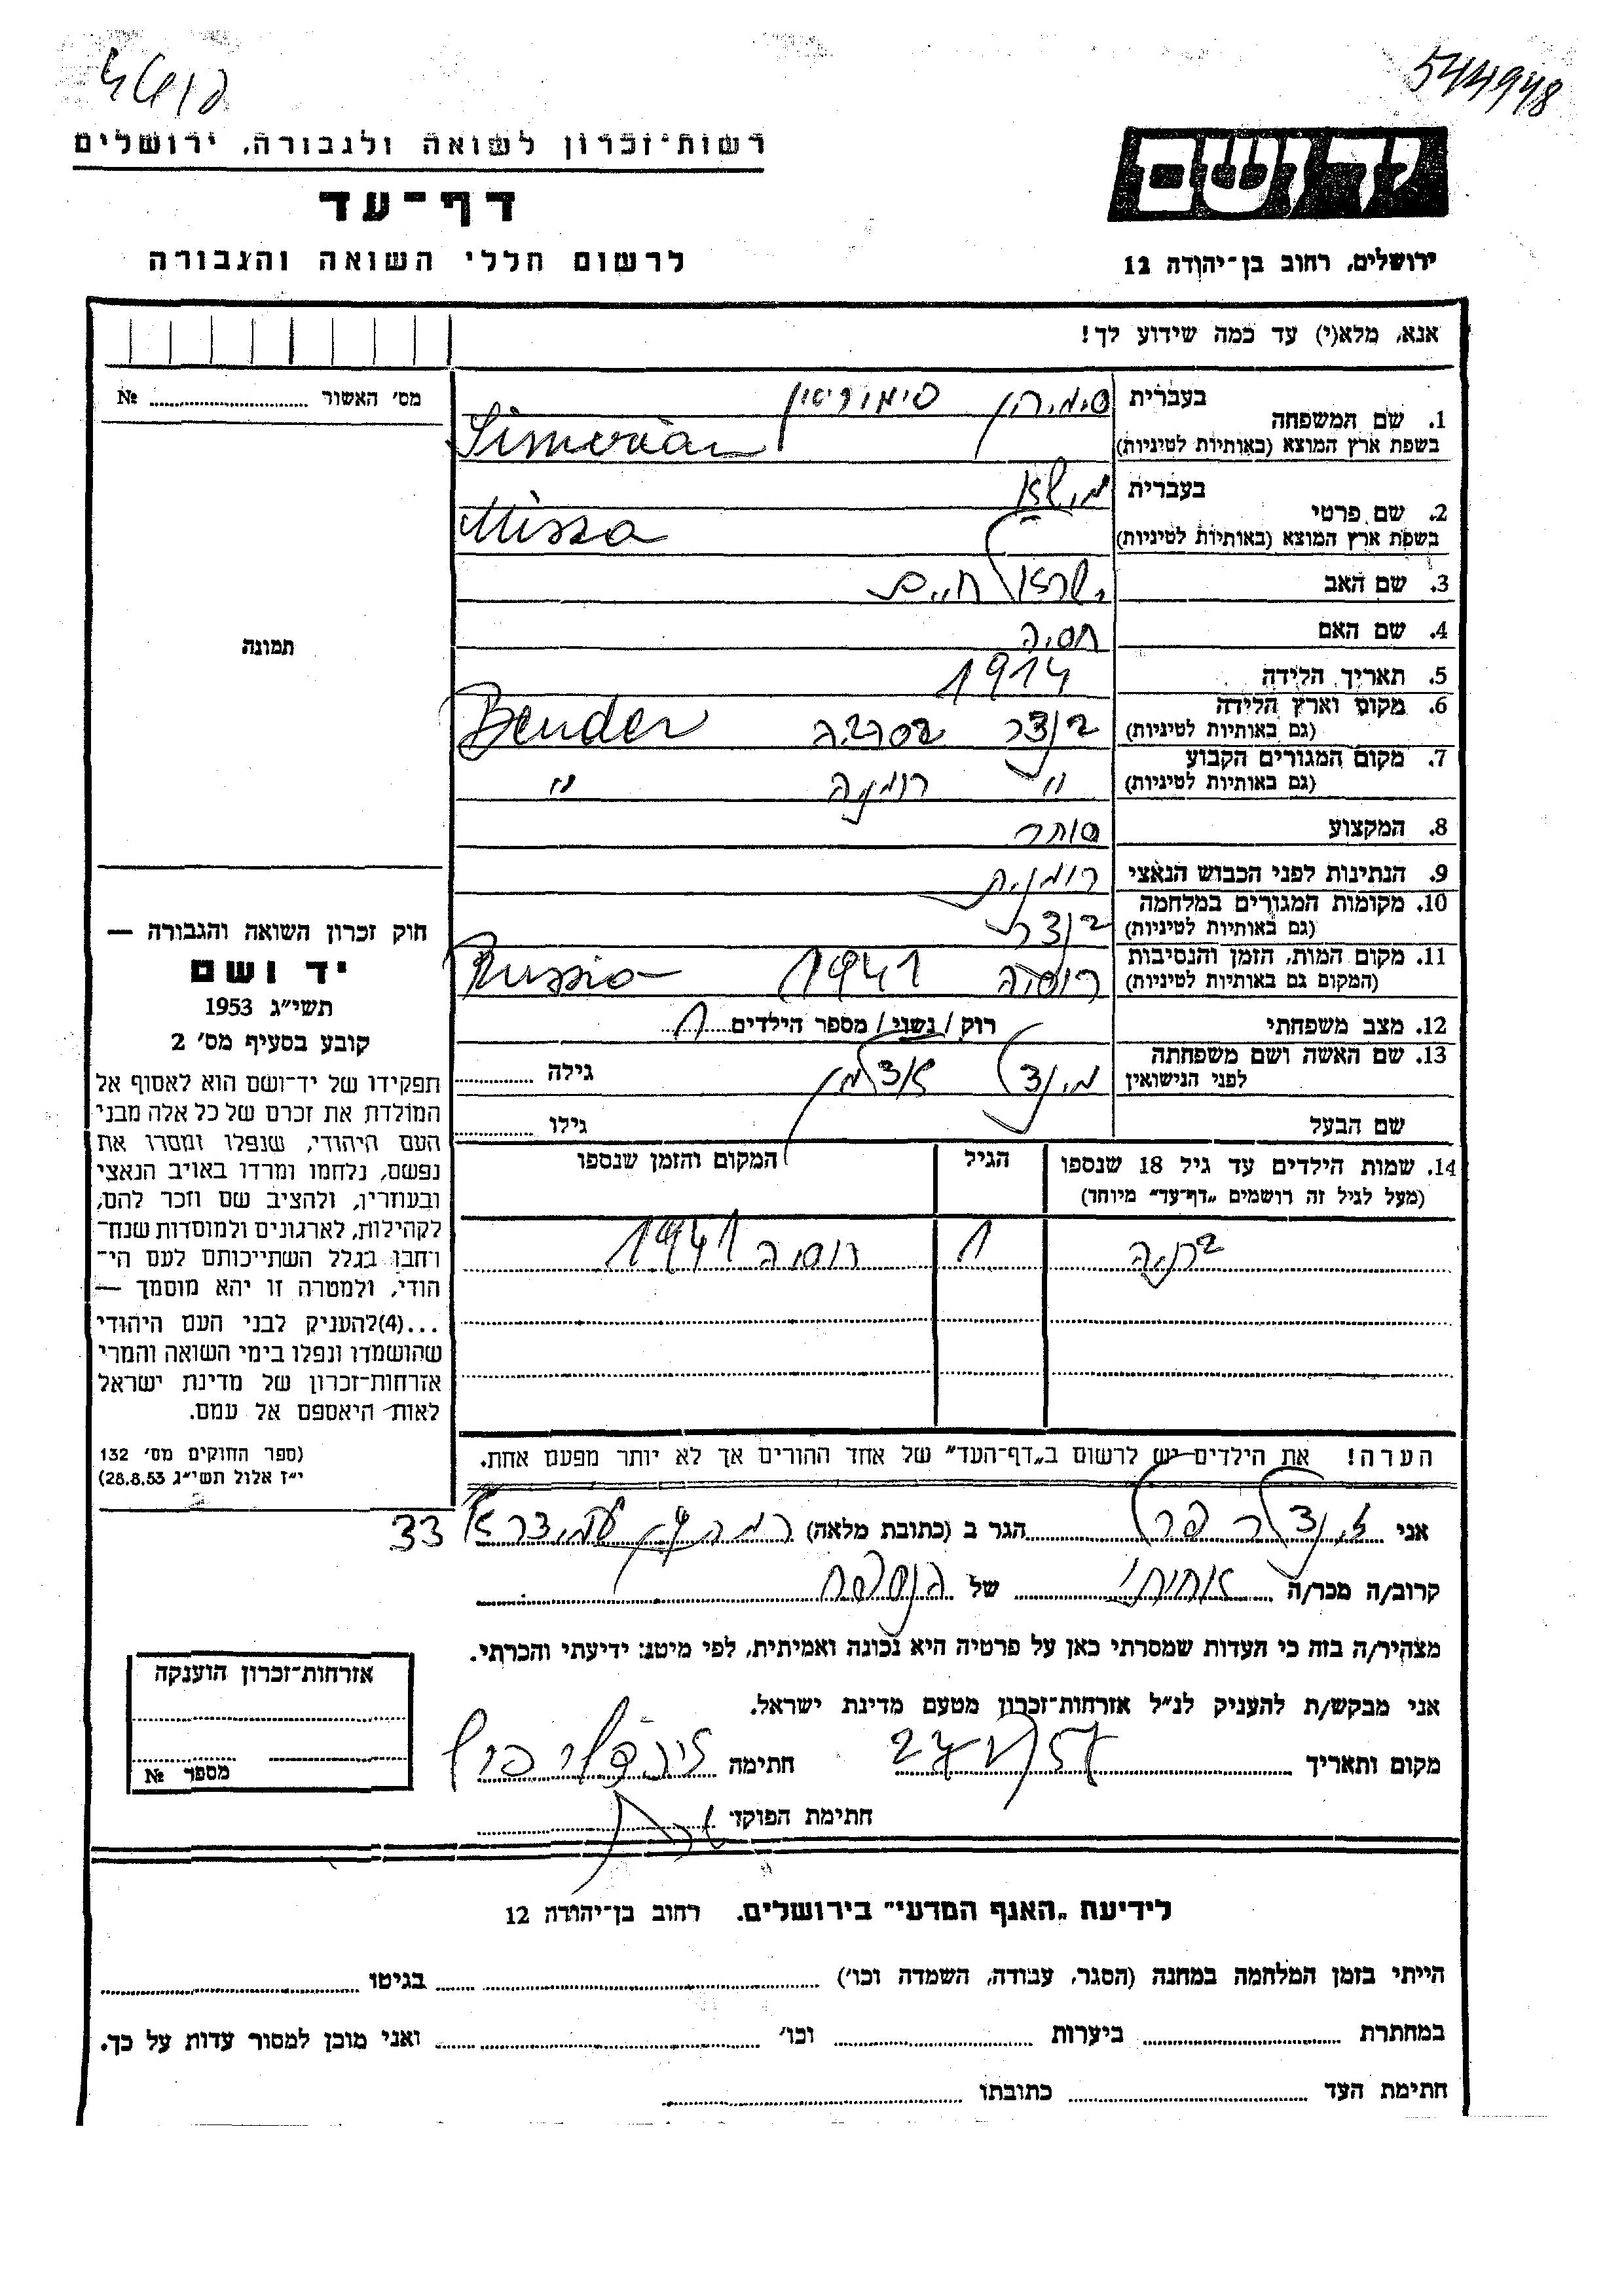 544948
רשות־זכרון לשואה ולגבורה, ירושלים
דף־עד
לרשום חללי השואה והגבורה
יד ושם
ירושלים, רחוב בן־יהודה 12
אנא, מלא(י) עד כמה שידוע לך!
מס׳ האשור № 
1. שם המשפחה
בעברית סימוריאן
בשפת ארץ המוצא (באותיות לטיניות) Simovian
2. שם פרטי
בעברית מישא
בשפת ארץ המוצא (באותיות לטיניות) Missa
3. שם האב ישראל חיים
4. שם האם חסיה
5. תאריך הלידה 1914
6. מקום וארץ הלידה בנדר בסרביה Bender
(גם באותיות לטיניות)
7. מקום המגורים הקבוע " רומניה "
(גם באותיות לטיניות)
8. המקצוע סוחר
9. הנתינות לפני הכבוש הנאצי רומנית
10. מקומות המגורים במלחמה בנדר
(גם באותיות לטיניות)
11. מקום המות, הזמן והנסיבות רוסיה 1941 Russia
(המקום גם באותיות לטיניות)
12. מצב משפחתי רוק / נשוי / מספר הילדים 1
13. שם האשה ושם משפחתה
לפני הנישואין מינדל אדלמן גילה
שם הבעל גילו
14. שמות הילדים עד גיל 18 שנספו הגיל המקום והזמן שנספו
(מעל לגיל זה רושמים „דף־עד״ מיוחד)
1 רוסיה 1941
תמונה
חוק זכרון השואה והגבורה —
יד ושם
תשי״ג 1953
קובע בסעיף מס׳ 2
תפקידו של יד־ושם הוא לאסוף אל
המולדת את זכרם של כל אלה מבני
העם היהודי, שנפלו ומסרו את
נפשם, נלחמו ומרדו באויב הנאצי
ובעוזריו, ולהציב שם וזכר להם,
לקהילות, לארגונים ולמוסדות שנח־
רבו בגלל השתייכותם לעם הי־
הודי, ולמטרה זו יהא מוסמך —
...(4) להעניק לבני העם היהודי
שהושמדו ונפלו בימי השואה והמרי
אזרחות־זכרון של מדינת ישראל
לאות היאספם אל עמם.
(ספר החוקים מס׳ 132
י״ז אלול תשי״ג 28.8.53)
הערה! את הילדים יש לרשום ב„דף־העד״ של אחד ההורים אך לא יותר מפעם אחת.
אני הגר ב (כתובת מלאה) 33
קרוב/ה מכר/ה של
מצהיר/ה בזה כי העדות שמסרתי כאן על פרטיה היא נכונה ואמיתית, לפי מיטב ידיעתי והכרתי.
אני מבקש/ת להעניק לנ״ל אזרחות־זכרון מטעם מדינת ישראל.
מקום ותאריך חתימה
חתימת הפוקד
אזרחות־זכרון הוענקה
מספר №
לידיעת „האגף המדעי״ בירושלים. רחוב בן־יהודה 12
הייתי בזמן המלחמה במחנה (הסגר, עבודה, השמדה וכו׳) בגיטו
במחתרת ביערות וכו׳ ואני מוכן למסור עדות על כך.
חתימת העד כתובתו